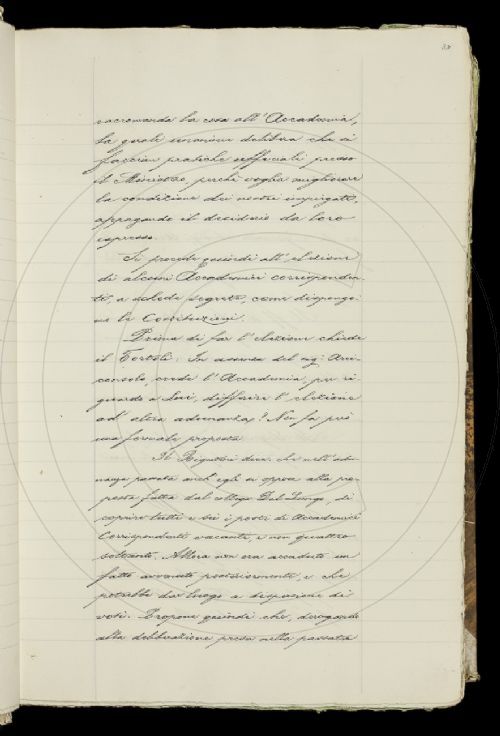 raccomanda la cosa all'Accademia,
la quale unanime delibera che si
facciano pratiche ufficiali presso
il Ministro, perchè voglia migliorare
la condizione dei nostri impiegati,
appagando il desiderio da loro
espresso.
Si procede quindi all'elezione
di alcuni Accademici corrisponden-
ti, a schede segrete, come dispongo-
no le Costituzioni.
Prima di far l'elezione chiede
il Tortoli: In assenza del sig. Arci-
consolo, crede l'Accademia, per ri-
guardo a Lui, differire l'elezione
ad altra adunanza? Non fa però
una formale proposta.
Il Rigutini dice che nell'adu-
nanza passata anch'egli si oppose alla pro-
posta fatta dal collega Del Lungo, di
coprire tutti e sei i posti di Accademici
Corrispondenti vacanti, e non quattro
soltanto. Allora non era accaduto un
fatto avvenuto posteriormente, e che
potrebbe dar luogo a dispersione di
voti. Propone quindi che, derogando
alla deliberazione presa nella passata